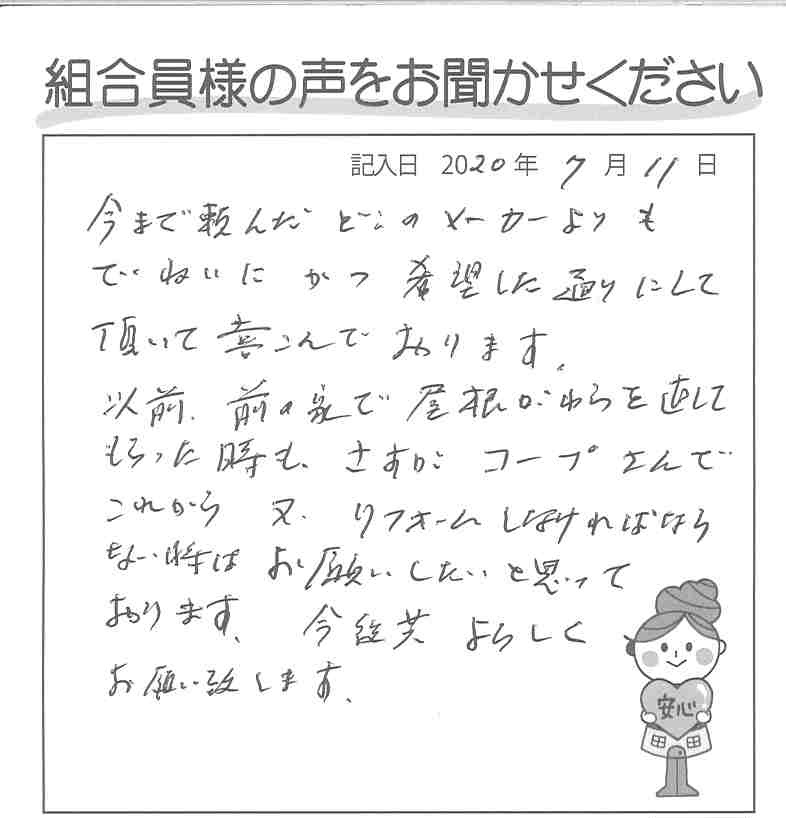 組合員様の声をお聞かせください
記入日 2020年 7月 11日
今まで頼んだ どこの メーカーよりも
ていねいに かつ 希望した通りにして
頂いて喜こんで おります。
以前、前の家で 屋根がわらを直して
もらった時も、さすが コープさんで
これから 又、リフォームしなければなら
ない時は お願いしたいと思って
おります。 今後共 よろしく
お願い致します。
安心